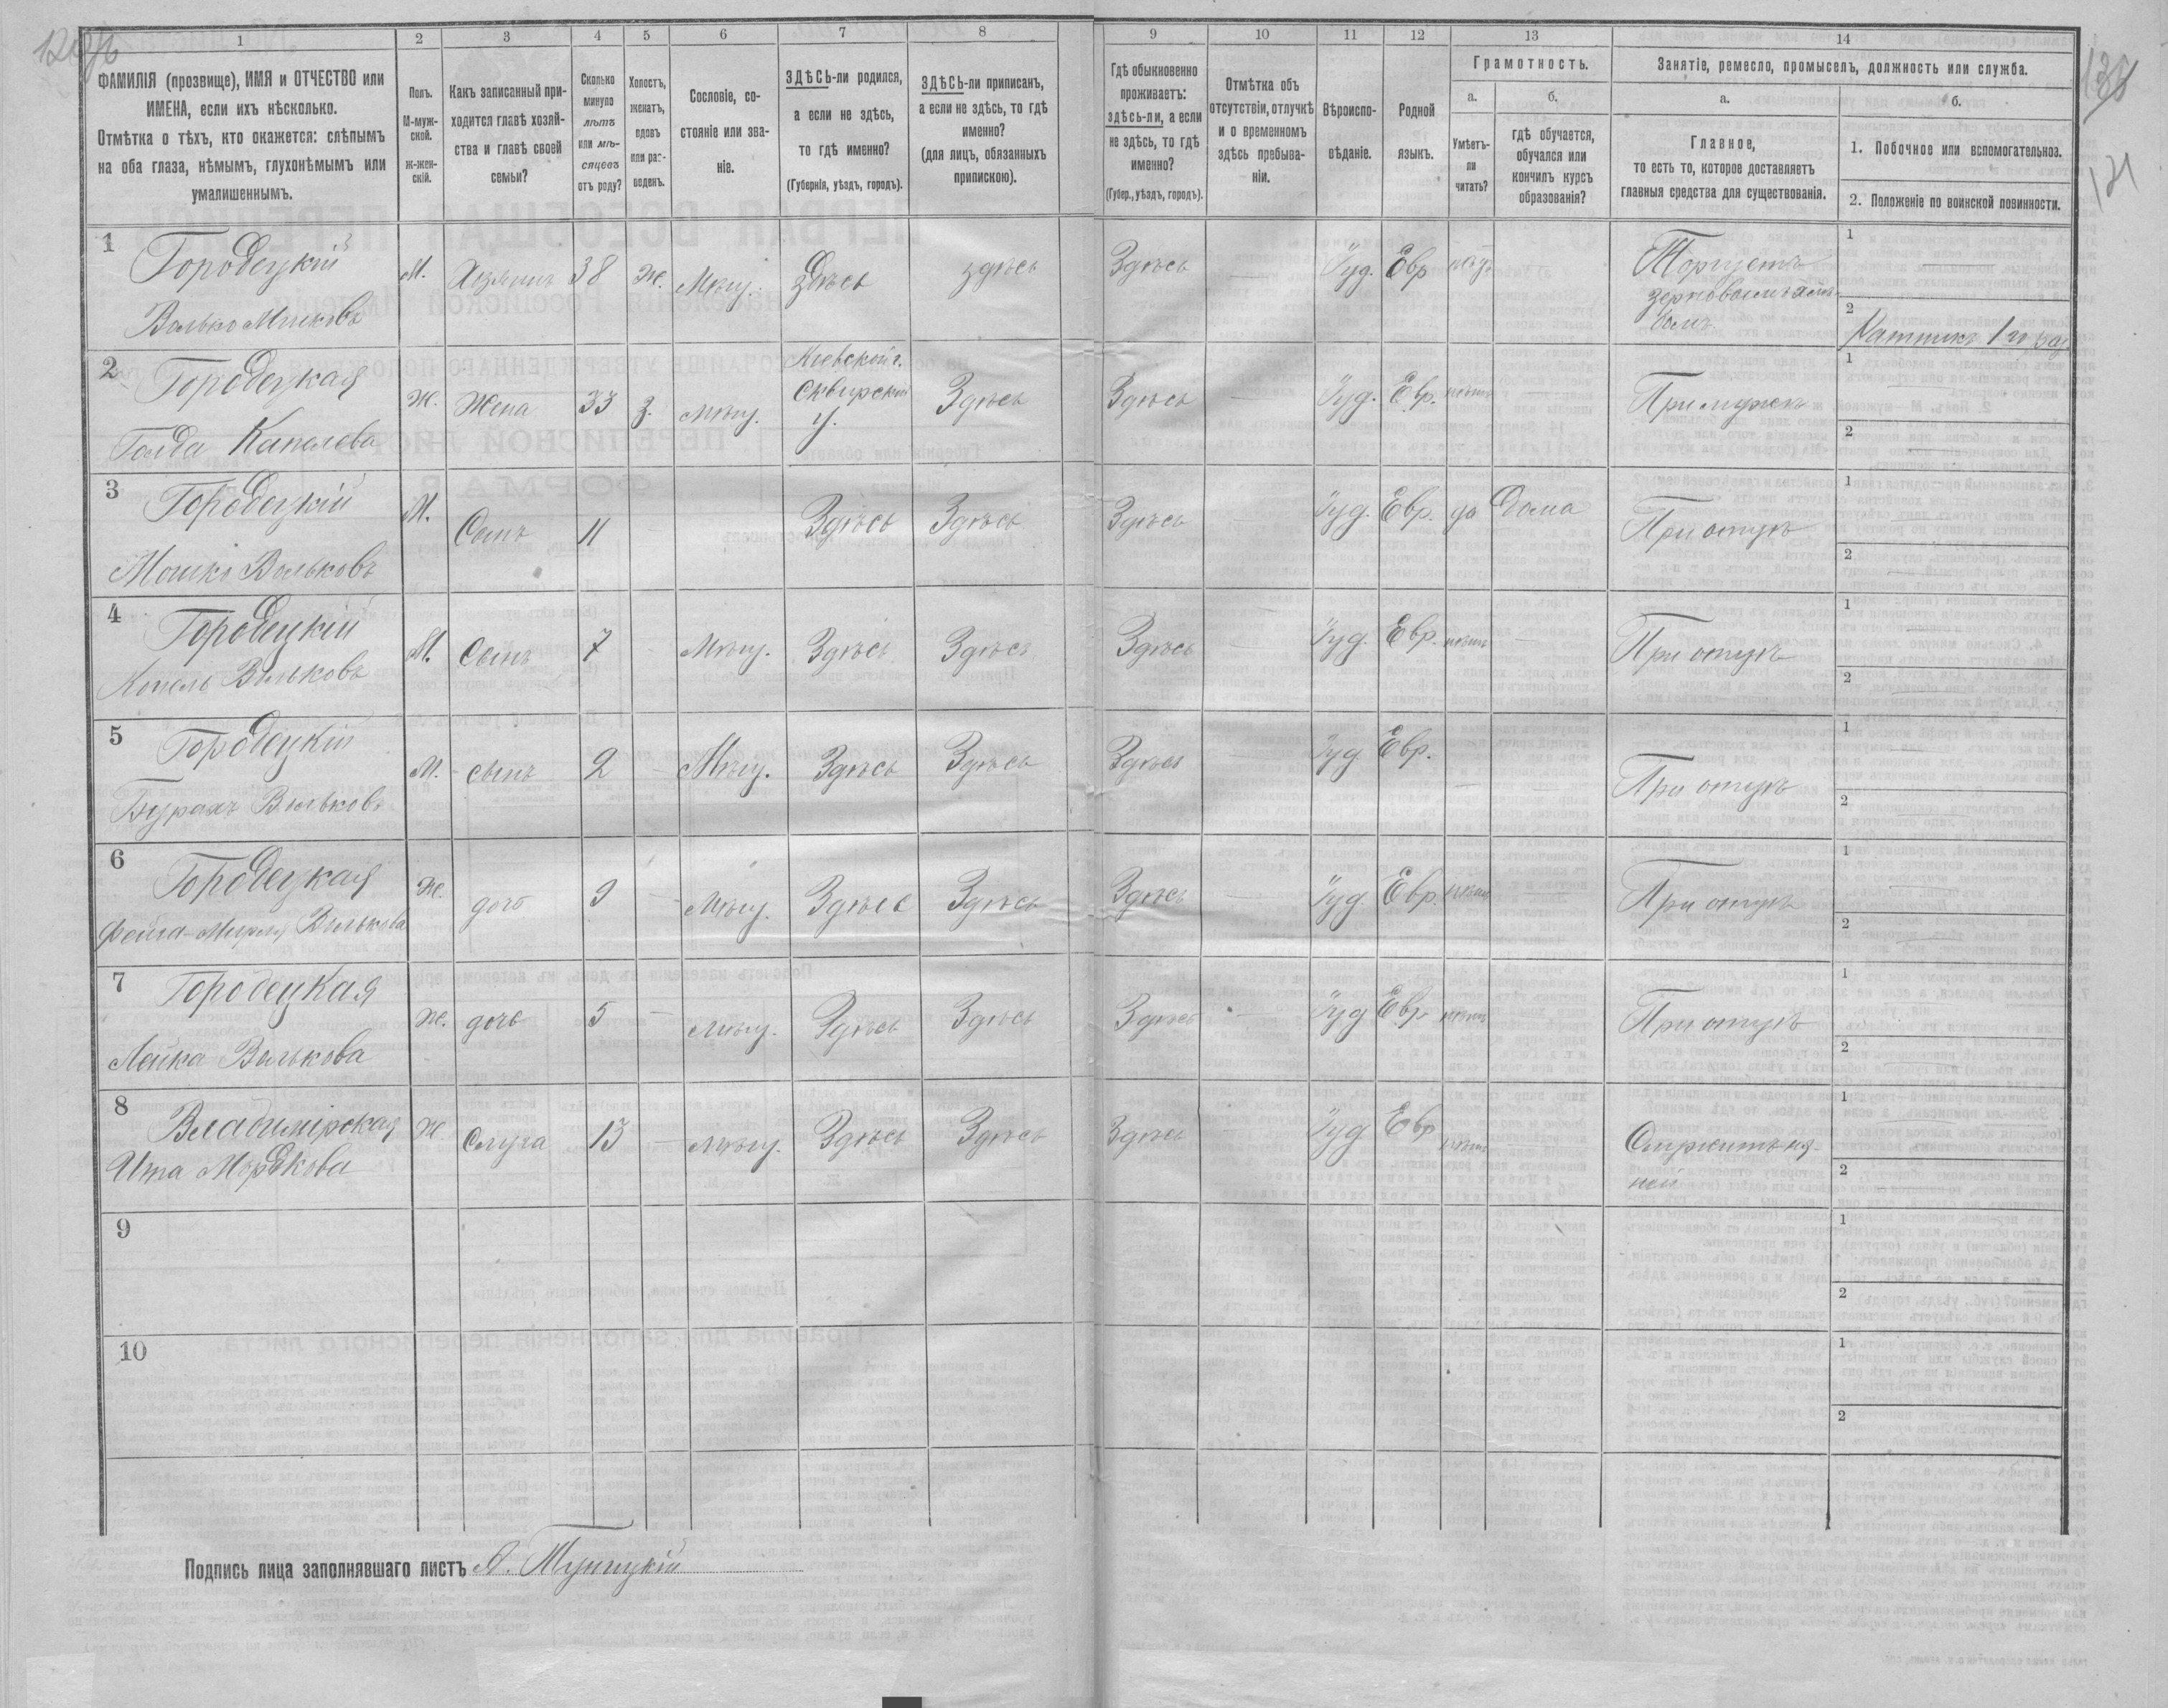 1 2 3 4 5 6 7 8 9 10 11 12 13 14
ФАМИЛІЯ (прозвище), ИМЯ и ОТЧЕСТВО или
ИМЕНА, если ихъ нѣсколько.
Отмѣтка о тѣхъ, кто окажется: слѣпымъ
на оба глаза, нѣмымъ, глухонѣмымъ или
умалишеннымъ.
Полъ.
М-муж-
ской.
ж-жен-
скій.
Какъ записанный при-
ходится главѣ хозяй-
ства и главѣ своей
семьи?
Сколько
минуло
лѣтъ
или мѣ-
сяцевъ
отъ роду?
Холостъ,
женатъ,
вдовъ
или раз-
веденъ.
Сословіе, со-
стояніе или зва-
ніе.
ЗДѢСЬ-ли родился,
а если не здѣсь,
то гдѣ именно?
(Губернія, уѣздъ, городъ).
ЗДѢСЬ-ли приписанъ,
а если не здѣсь, то гдѣ
именно?
(для лицъ, обязанныхъ
припискою).
Гдѣ обыкновенно
проживаетъ:
здѣсь-ли, а если
не здѣсь, то гдѣ
именно?
(Губер., уѣздъ, городъ).
Отмѣтка объ
отсутствіи, отлучкѣ
и о временномъ
здѣсь пребыва-
ніи.
Вѣроиспо-
вѣданіе.
Родной
языкъ.
Грамотность.
а.
Умѣетъ-
ли
читать?
б.
гдѣ обучается,
обучался или
кончилъ курсъ
образованія?
Занятіе, ремесло, промыселъ, должность или служба.
а.
Главное,
то есть то, которое доставляетъ
главныя средства для существованія.
б.
1. Побочное или вспомогательное.
2. Положеніе по воинской повинности.
1 Городецкій М. Хозяинъ 38 Ж. Мѣщ. Здѣсь здѣсь Здѣсь Іуд. Евр Торгуетъ 1
Волько зерновымъ
2 Ратникъ 1
2 Городецкая Ж. Жена 33 З. Мѣщ. Кіевской г. Здѣсь Здѣсь Іуд. Евр. нѣтъ При мужѣ 1
Сквирскій
Голда у. 2
3 Городецкій М. Сынъ 11 Здѣсь Здѣсь Здѣсь Іуд. Евр. да Дома При отцѣ 1
Мошко Вольковъ 2
4 Городецкій М. Сынъ 7 Мѣщ. Здѣсь Здѣсь Здѣсь Іуд. Евр. нѣтъ При отцѣ 1
Вольковъ 2
5 Городецкій М. сынъ 2 Мѣщ. Здѣсь Здѣсь Здѣсь Іуд Евр. При отцѣ 1
Вольковъ 2
6 Городецкая Ж. дочь 9 Мѣщ. Здѣсь Здѣсь Здѣсь Іуд Евр. нѣтъ При отцѣ 1
Фейга- Волькова 2
7 Городецкая Ж. дочь 5 Мѣщ. Здѣсь Здѣсь Здѣсь Іуд Евр. нѣтъ При отцѣ 1
Лейка Волькова 2
8 Владимірская Ж Слуга 13 Мѣщ. Здѣсь Здѣсь Здѣсь Іуд Евр нѣтъ 1
Ита Мордкова 2
9 1
2
10 1
2
Подпись лица заполнявшаго листъ А.